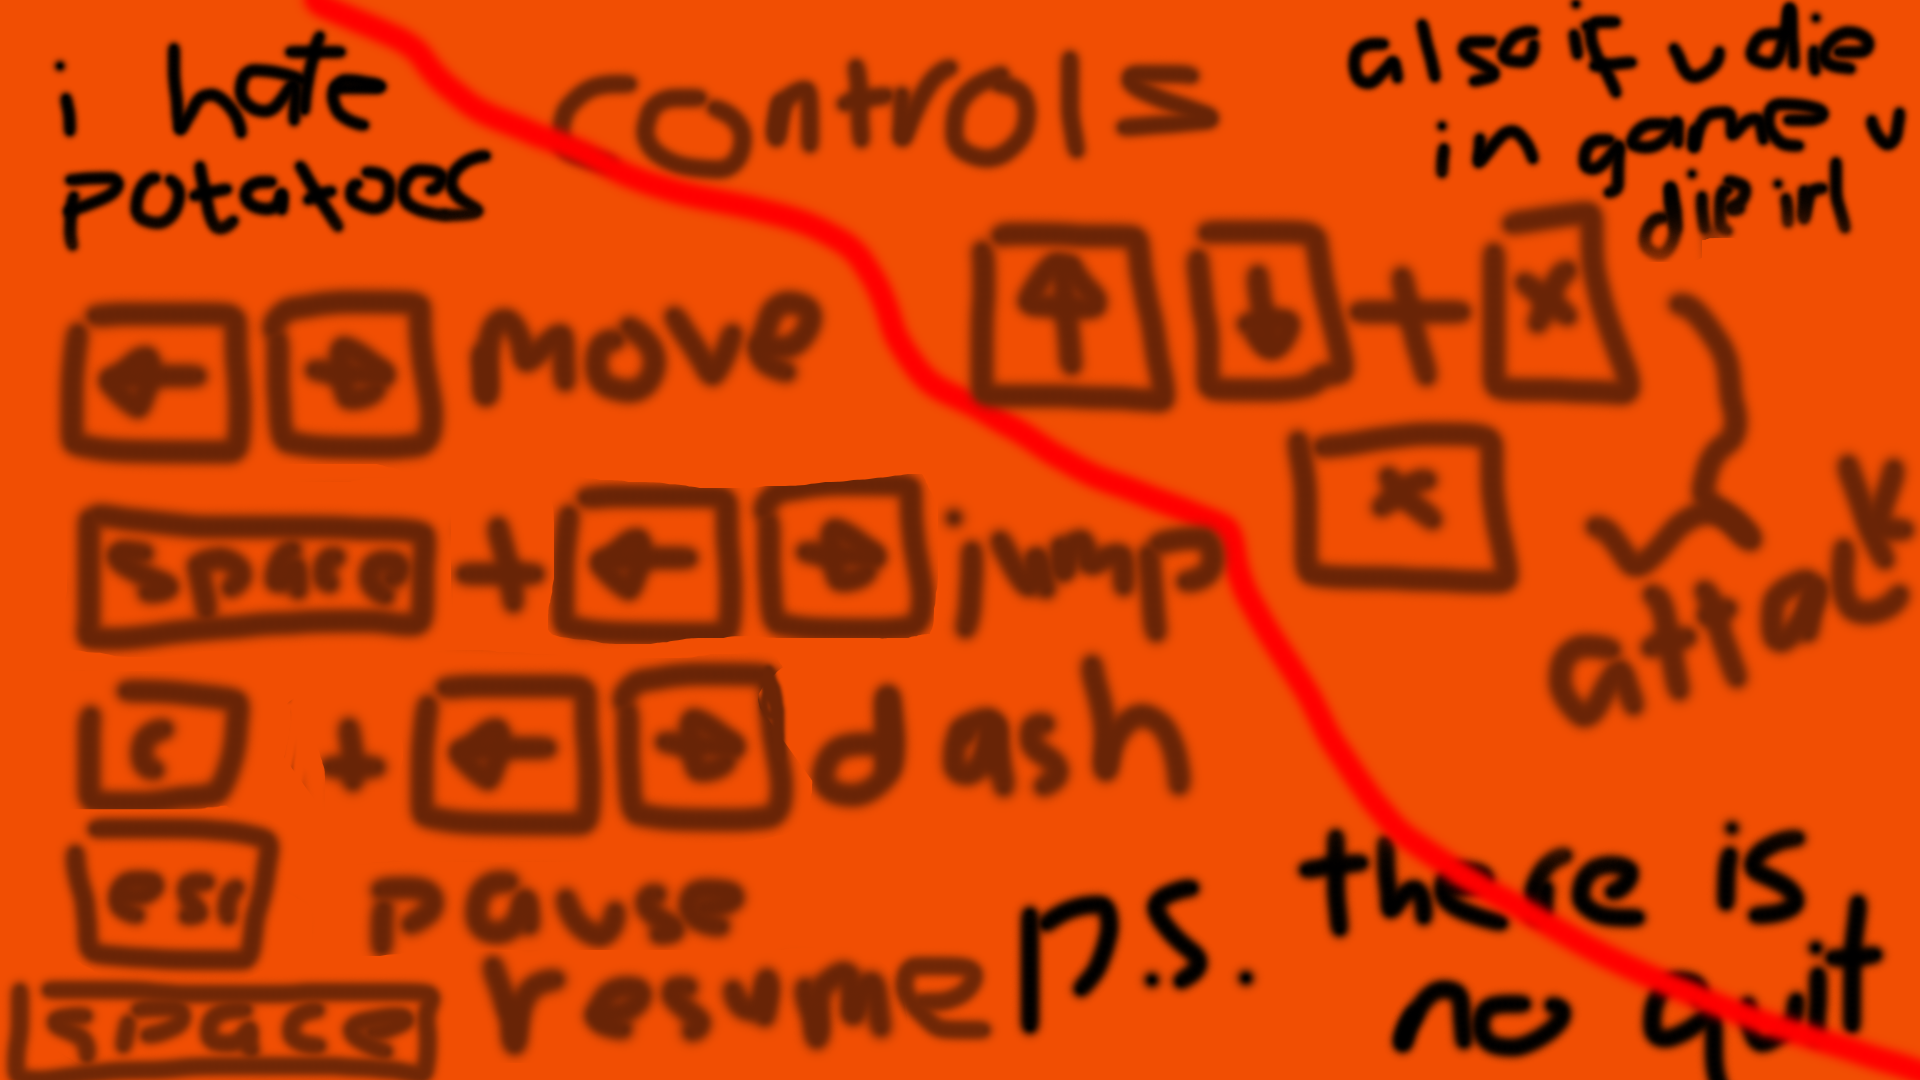 i hate
potatoes
controls
also if u die
in game u
die irl
← → move
↑ ↓ + x
x
attack
space + ← → jump
c + ← → dash
esc pause
space resume
p.s. there is
no quit